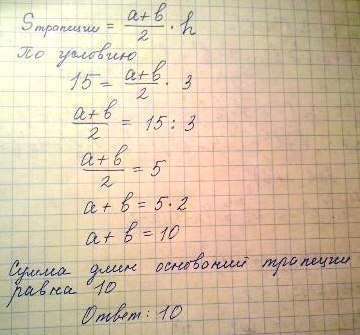 Sтрапеции = a+b/2 · h
По условию
15 = a+b/2 · 3
a+b/2 = 15 : 3
a+b/2 = 5
a+b = 5·2
a+b = 10
Сумма длин оснований трапеции
равна 10
Ответ: 10